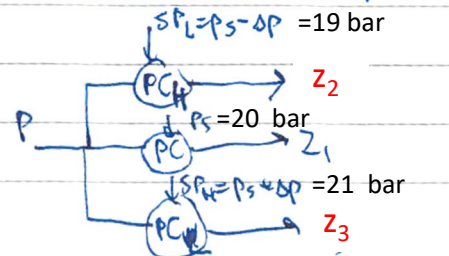 SPL=PS-ΔP =19 bar
PCH
Z2
P
PS=20 bar
PC
Z1
SPH=PS+ΔP =21 bar
PC
Z3